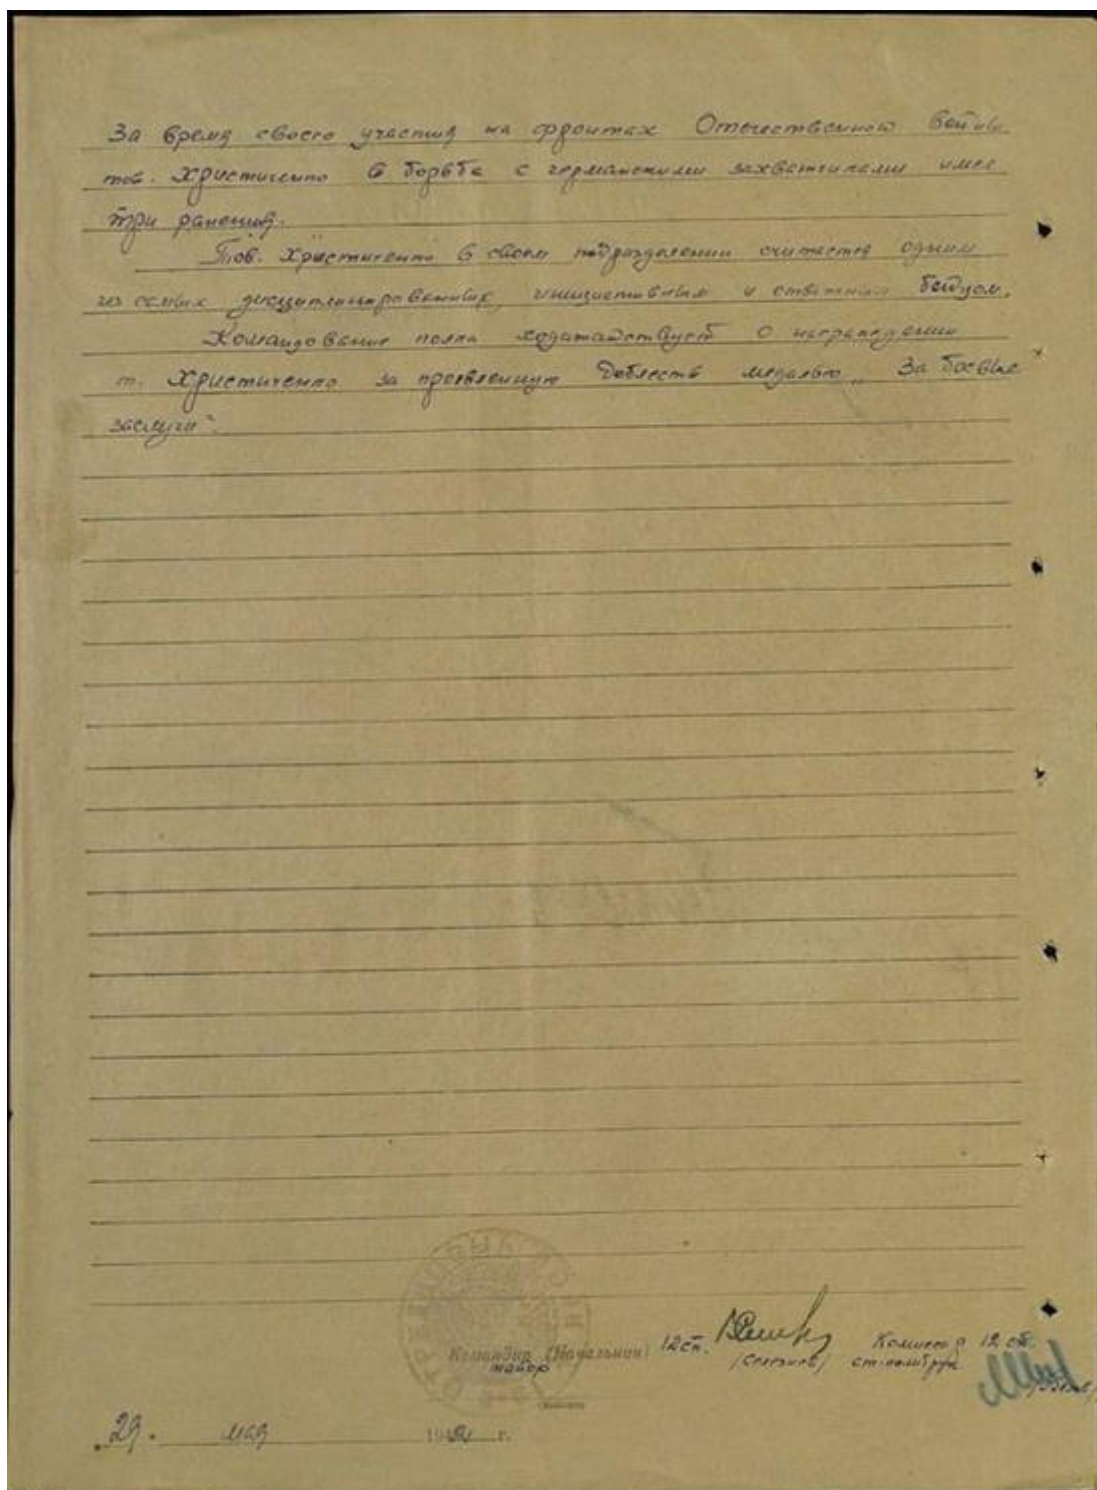 За время своего участия на фронтах Отечественной войны
тов. Христиченко в борьбе с германскими захватчиками имел
три ранения.
Тов. Христиченко в своем подразделении считается одним
из самых дисциплинированных, инициативным и бойцом.
Командование полка ходатайствует о награждении
т. Христиченко за проявленную доблесть медалью „За боевые
заслуги".
Командир (Начальник) 12 сп. Комиссар 12 сп.
майор ст. политрук
„29" мая 1942 г.